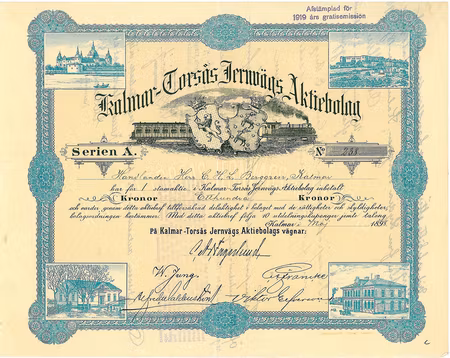 Afstämplad för
1919 års gratisemission
Kalmar-Torsås Jernvägs Aktiebolag
Serien A.
No 758
Handlanden Herr C. H. L. Berggren, Kalmar
har för 1 stamaktie i Kalmar-Torsås Jernvägs Aktiebolag inbetalt
Kronor Etthundra Kronor
och varder, genom detta aktiebref tillförsäkrad delaktighet i bolaget med de rättigheter och skyldigheter,
bolagsordningen bestämmer. Med detta aktiebref följa 10 utdelningskuponger jemte talong.
Kalmar i Maj 1898
På Kalmar-Torsås Jernvägs Aktiebolags vägnar:
W. Jung.